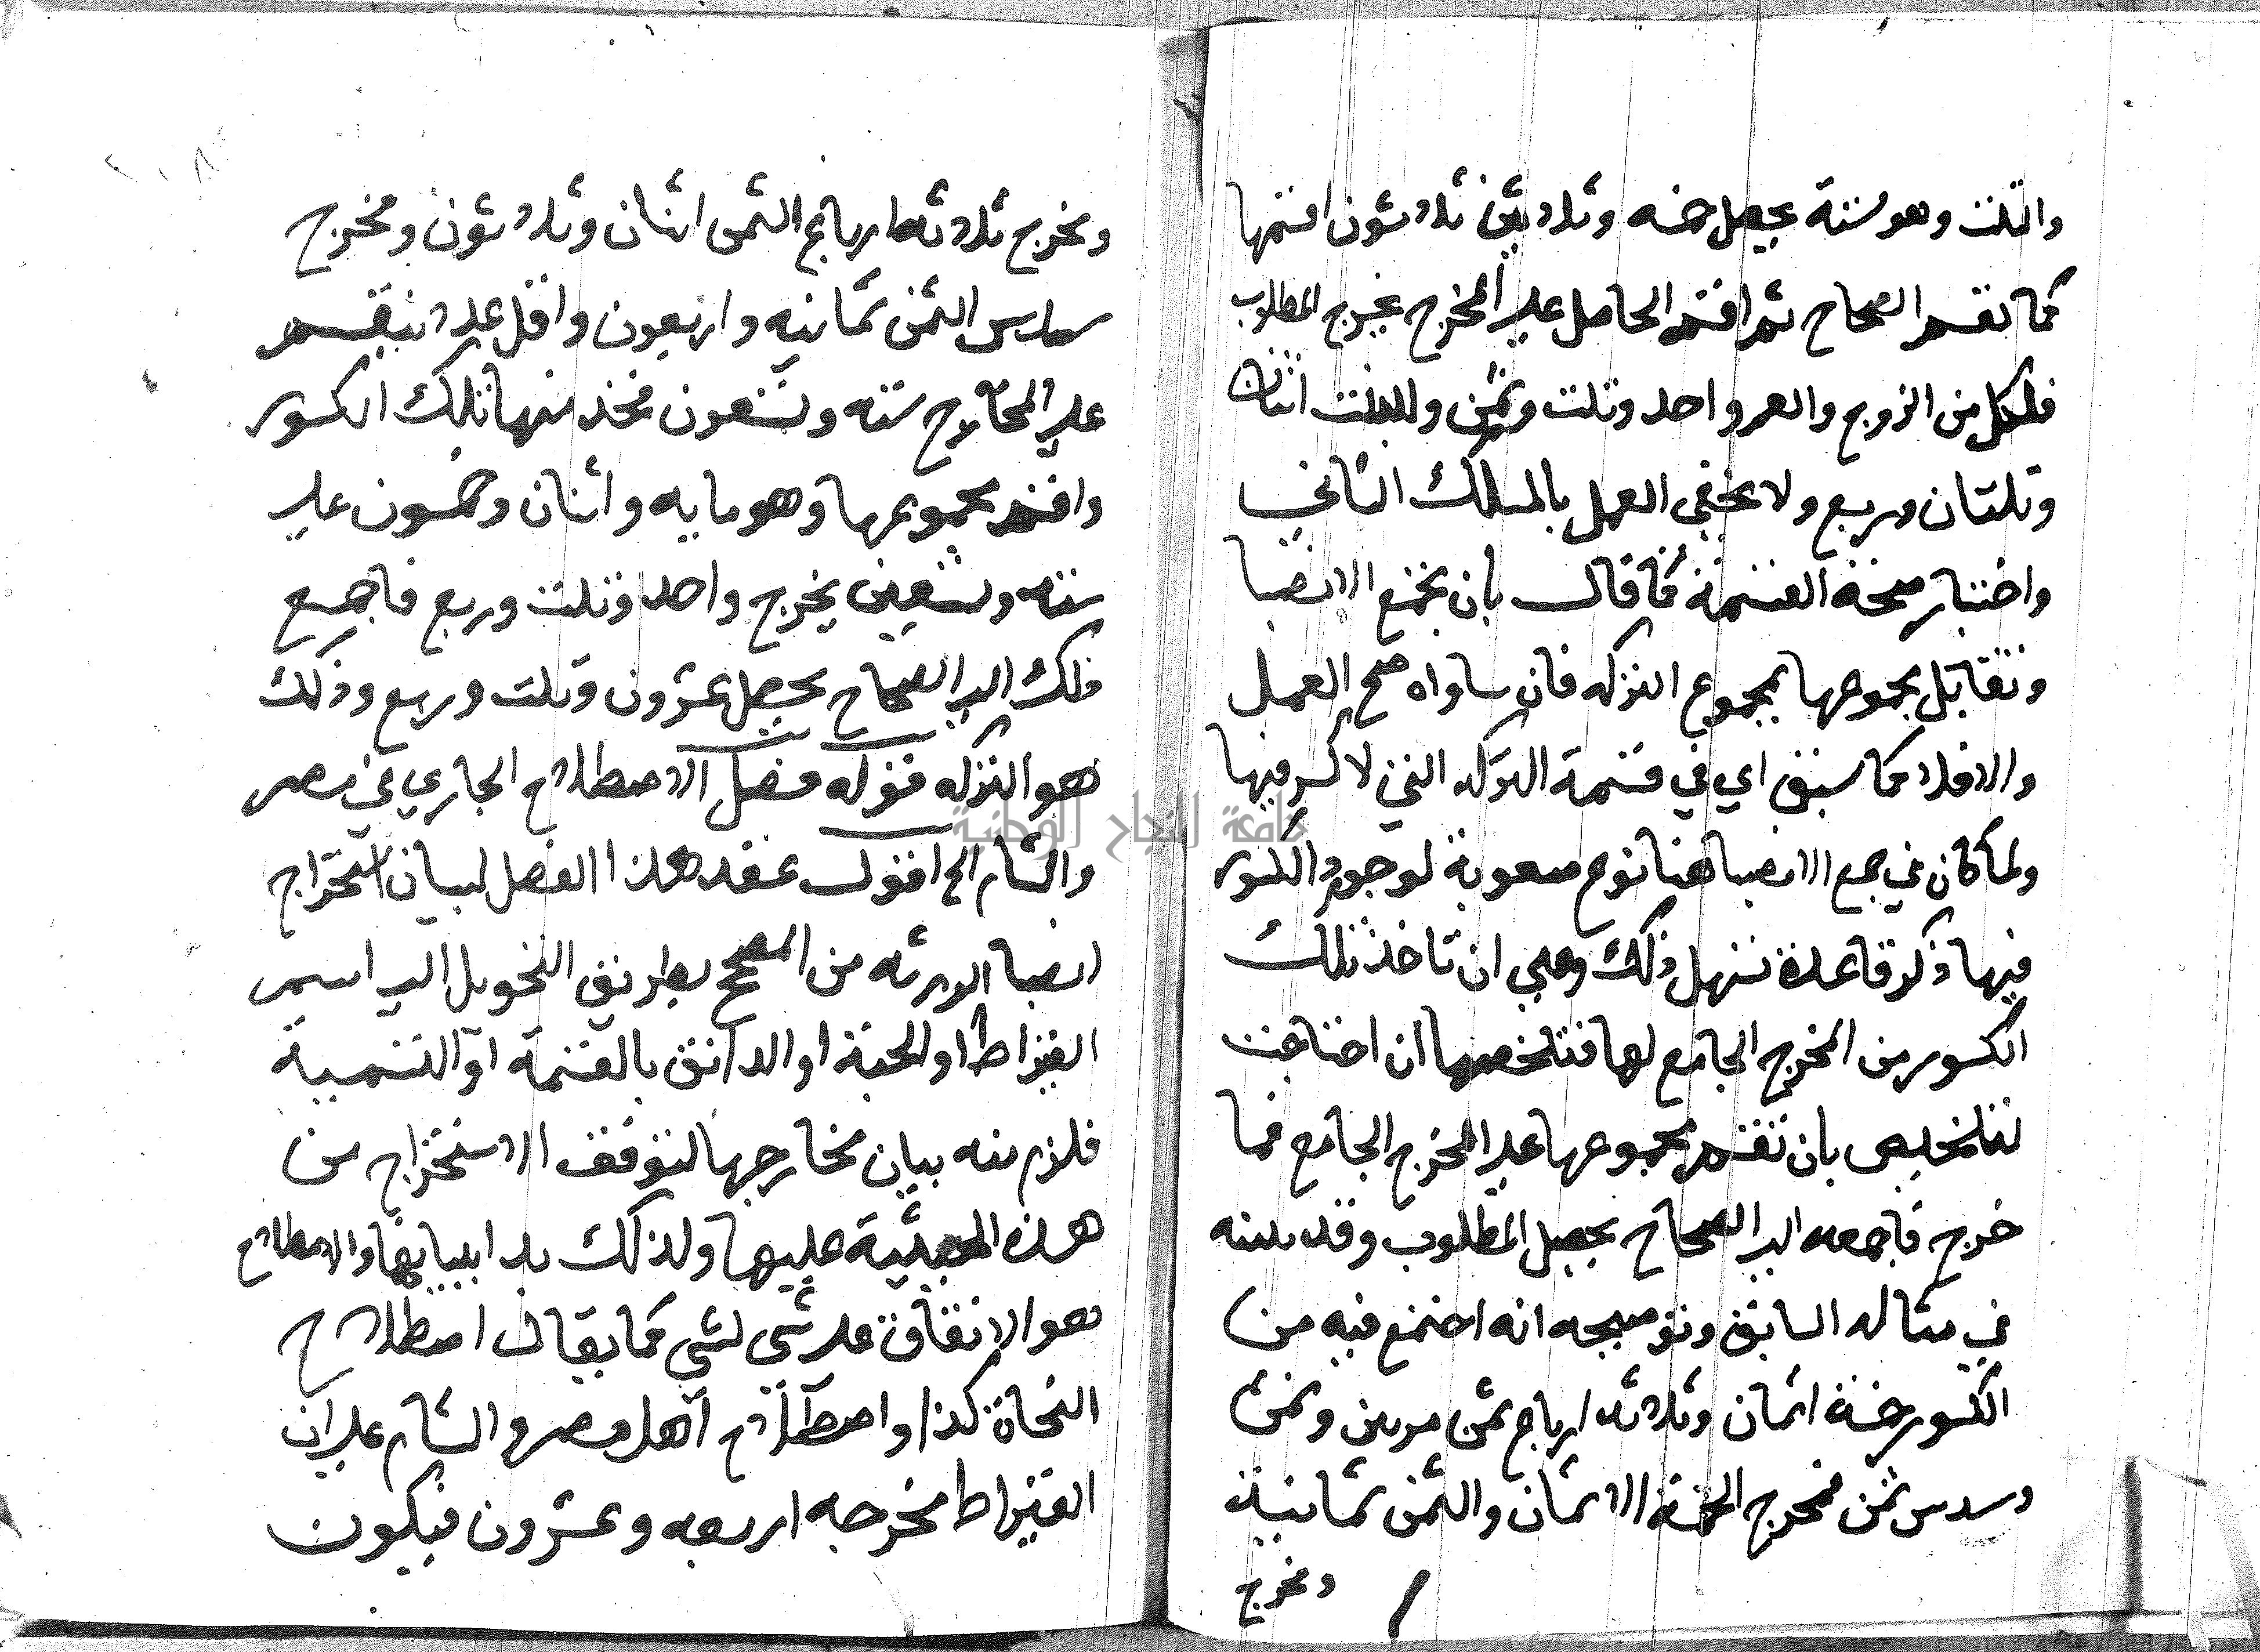 والثلث وهو ستة يحصل خمسه وثلاثين ثلاثون اقسمها
كما تقسم الصحاح ثم اقسم الحاصل على المخرج يخرج المطلوب
فلكل من الزوج والعم واحد وثلث وثمن وللبنت اثنان
وثلثان وربع ولا يخفى العمل بالمسلك الثاني
واختبار صحة القسمة كما قال بان تجمع الانصبا
وتقابل مجموعها بمجموع التركه فان ساواه صح العمل
والا فلا كما سبق اي في قسمة التركه التي لا كسر فيها
ولما كان في جمع الانصبا هنا نوع صعوبة لوجود الكسور
فيها ذكر قاعدة تسهل ذلك وهي ان تاخذ تلك
الكسور من المخرج الجامع لها فتلخصها ان احتاجت
لتلخيص بان تقسم مجموعها على المخرج الجامع فما
خرج فاجمعه الى الصحاح يحصل المطلوب وقد بينه
في مثاله السابق وتوضيحه انه اجتمع فيه من
الكسور خمسة اثمان وثلاثه ارباع ثمن مرتين وثمن
وسدس ثمن فمخرج الخمسة الاثمان والثمن ثمانية
ومخرج
ومخرج ثلاثه ارباع الثمن اثنان وثلاثون ومخرج
سدس الثمن ثمانيه واربعون واقل عدد ينقسم
على المخارج سته وتسعون فخذ منها تلك الكسور
واقسم مجموعها وهو مايه واثنان وخمسون على
سته وتسعين يخرج واحد وثلث وربع فاجمع
ذلك الى الصحاح يحصل عشرون وثلث وربع وذلك
هو التركه قوله فصل الاصطلاح الجاري في مصر
والشام الخ اقول عقد هذا الفصل لبيان استخراج
انصبا الورثه من المصحح بطريق التحويل الى اسم
القيراط او الحبة او الدانق بالقسمة او التسمية
فلزم منه بيان مخارجها لتوقف الاستخراج من
هذه الحيثية عليها ولذلك بدا ببيانها والاصطلاح
هو الاتفاق على شي لشي كما يقال اصطلاح
النحاة كذا واصطلاح اهل مصر والشام على ان
القيراط مخرجه اربعه وعشرون فيكون
جامعة النجاح الوطنية